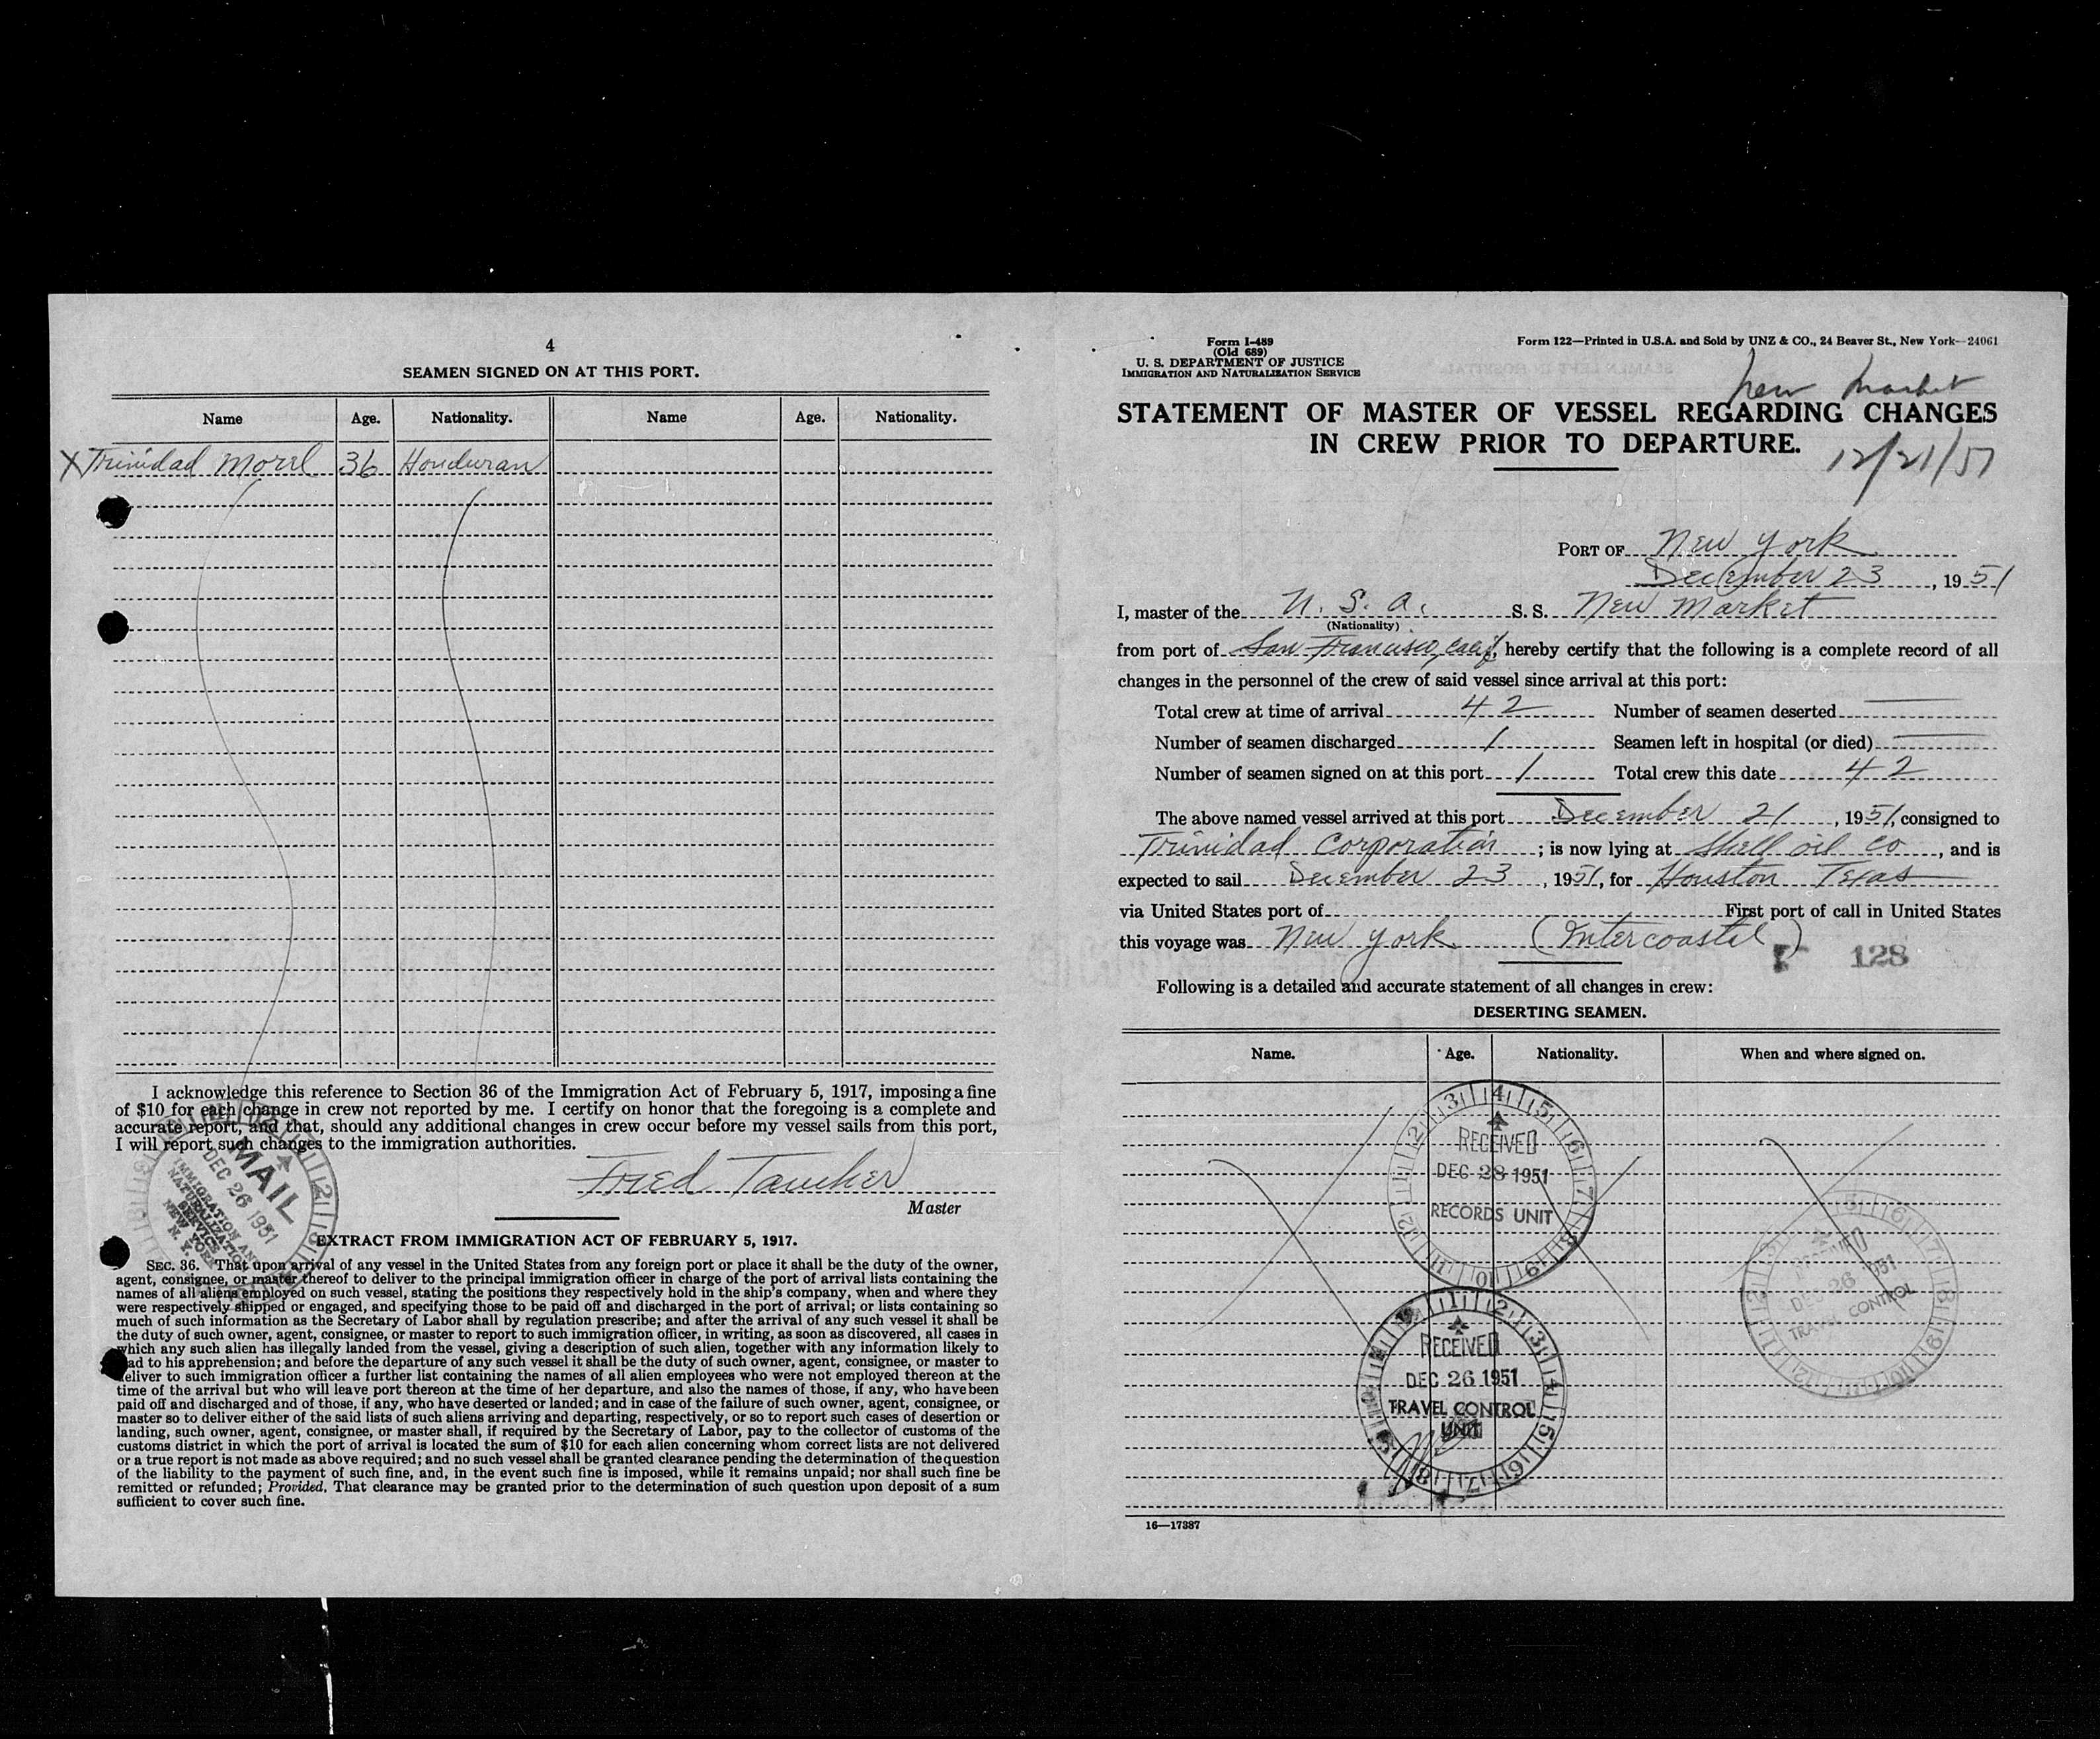 4
SEAMEN SIGNED ON AT THIS PORT.
Name Age. Nationality. Name Age. Nationality.
X Trinidad Morel 36 Honduran
I acknowledge this reference to Section 36 of the Immigration Act of February 5, 1917, imposing a fine
of $10 for each change in crew not reported by me. I certify on honor that the foregoing is a complete and
accurate report, and that, should any additional changes in crew occur before my vessel sails from this port,
I will report such changes to the immigration authorities.
Fred Taucher
Master
MAIL
DEC 26 1951
IMMIGRATION AND
NATURALIZATION
SERVICE
NEW YORK
N. Y.
EXTRACT FROM IMMIGRATION ACT OF FEBRUARY 5, 1917.
SEC. 36. That upon arrival of any vessel in the United States from any foreign port or place it shall be the duty of the owner,
agent, consignee, or master thereof to deliver to the principal immigration officer in charge of the port of arrival lists containing the
names of all aliens employed on such vessel, stating the positions they respectively hold in the ship's company, when and where they
were respectively shipped or engaged, and specifying those to be paid off and discharged in the port of arrival; or lists containing so
much of such information as the Secretary of Labor shall by regulation prescribe; and after the arrival of any such vessel it shall be
the duty of such owner, agent, consignee, or master to report to such immigration officer, in writing, as soon as discovered, all cases in
which any such alien has illegally landed from the vessel, giving a description of such alien, together with any information likely to
ad to his apprehension; and before the departure of any such vessel it shall be the duty of such owner, agent, consignee, or master to
eliver to such immigration officer a further list containing the names of all alien employees who were not employed thereon at the
time of the arrival but who will leave port thereon at the time of her departure, and also the names of those, if any, who have been
paid off and discharged and of those, if any, who have deserted or landed; and in case of the failure of such owner, agent, consignee, or
master so to deliver either of the said lists of such aliens arriving and departing, respectively, or so to report such cases of desertion or
landing, such owner, agent, consignee, or master shall, if required by the Secretary of Labor, pay to the collector of customs of the
customs district in which the port of arrival is located the sum of $10 for each alien concerning whom correct lists are not delivered
or a true report is not made as above required; and no such vessel shall be granted clearance pending the determination of the question
of the liability to the payment of such fine, and, in the event such fine is imposed, while it remains unpaid; nor shall such fine be
remitted or refunded; Provided, That clearance may be granted prior to the determination of such question upon deposit of a sum
sufficient to cover such fine.
Form I-489
(Old 689)
U. S. DEPARTMENT OF JUSTICE
IMMIGRATION AND NATURALIZATION SERVICE
Form 122—Printed in U.S.A. and Sold by UNZ & CO., 24 Beaver St., New York—24061
New Market
STATEMENT OF MASTER OF VESSEL REGARDING CHANGES
IN CREW PRIOR TO DEPARTURE.
12/21/51
PORT OF New York
December 23, 1951
I, master of the U. S. A. S. S. New Market
(Nationality)
from port of San Francisco, Calif, hereby certify that the following is a complete record of all
changes in the personnel of the crew of said vessel since arrival at this port:
Total crew at time of arrival 42 Number of seamen deserted —
Number of seamen discharged 1 Seamen left in hospital (or died) —
Number of seamen signed on at this port 1 Total crew this date 42
The above named vessel arrived at this port December 21, 1951, consigned to
Trinidad Corporation; is now lying at Shell oil Co, and is
expected to sail December 23, 1951, for Houston Texas
via United States port of First port of call in United States
this voyage was New York. (Intercoastal)
128
Following is a detailed and accurate statement of all changes in crew:
DESERTING SEAMEN.
Name. Age. Nationality. When and where signed on.
RECEIVED
DEC 28 1951
RECORDS UNIT
RECEIVED
DEC 26 1951
TRAVEL CONTROL
UNIT
RECEIVED
DEC 26 1951
TRAVEL CONTROL
16—17387